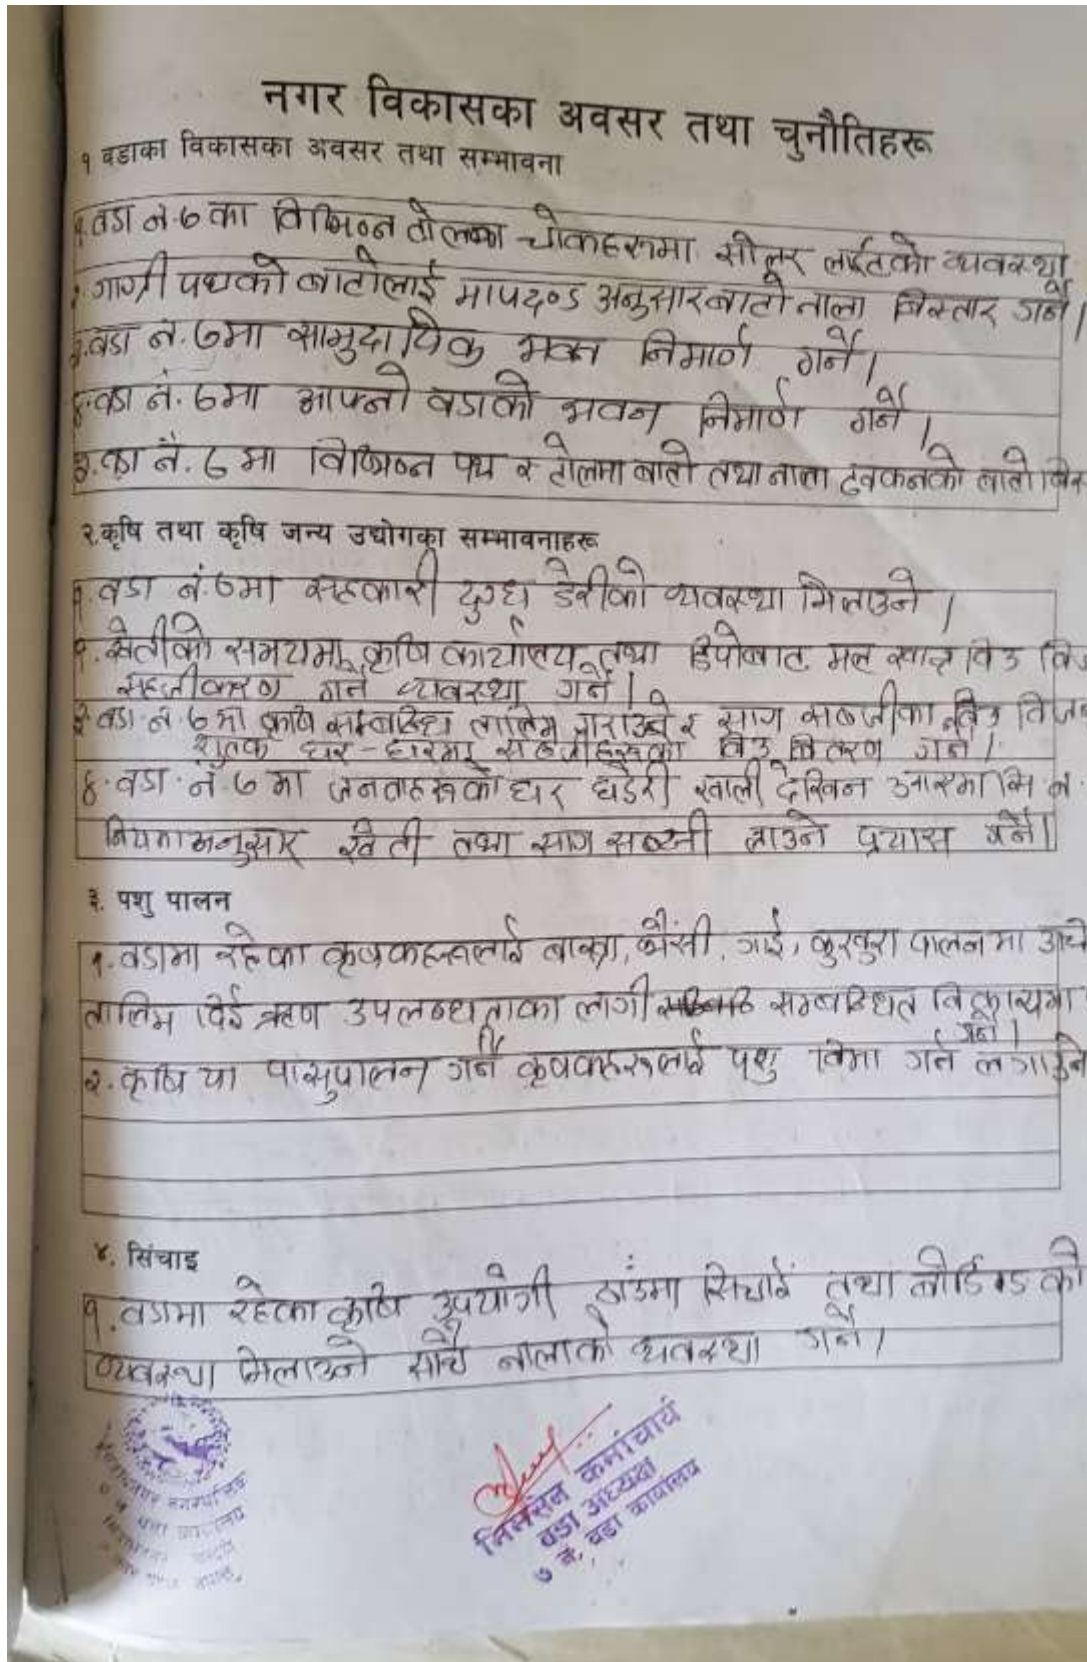 नगर विकासका अवसर तथा चुनौतिहरू
१ वडाका विकासका अवसर तथा सम्भावना
१. वडा नं. ७ का विभिन्न टोलका चोकहरूमा सोलर लाईटको व्यवस्था
२. गाग्री पथको बाटोलाई मापदण्ड अनुसार बाटो नाला विस्तार गर्ने।
३. वडा नं. ७मा सामुदायिक भवन निमार्ण गर्ने।
४. वडा नं. ७मा आफ्नो वडाको भवन निमार्ण गर्ने।
५. वडा नं. ७ मा विभिन्न पथ र टोलमा बाटो तथा नाला ढक्कनको बाटो
२. कृषि तथा कृषि जन्य उद्योगका सम्भावनाहरू
१. वडा नं. ७मा सहकारी दुग्ध डेरीको व्यवस्था मिलाउने।
२. खेतीको समयमा कृषि कार्यालय तथा डिपोबाट मल खाद्य विउ
सहजीकरण गर्ने व्यवस्था गर्ने।
३. वडा नं. ७ मा कृषि सम्बन्धि तालिम गराउने र साग सब्जीका विउ
शुल्क घर-घरमा सब्जीहरूका विउ वितरण गर्ने।
४. वडा नं. ७ मा जनताहरूको घर घडेरी खाली देखिन
नियमाअनुसार खेती तथा साग सब्जी लाउने प्रयास गर्ने।
३. पशु पालन
१. वडामा रहेका कृषकहरूलाई बाख्रा, भैंसी, गाई, कुखुरा पालनमा
तालिम दिई ऋण उपलब्धताका लागी सम्बन्धित निकायमा
गर्ने।
२. कृषि या पासुपालन गर्ने कृषकहरूलाई पशु विमा गर्न लगाउने
४. सिंचाइ
१. वडामा रहेका कृषि उपयोगी ठाउंमा सिचाई तथा को
व्यवस्था मिलाउने साथै नालाको व्यवस्था गर्ने।
वडा अध्यक्ष
७ नं. वडा कार्यालय